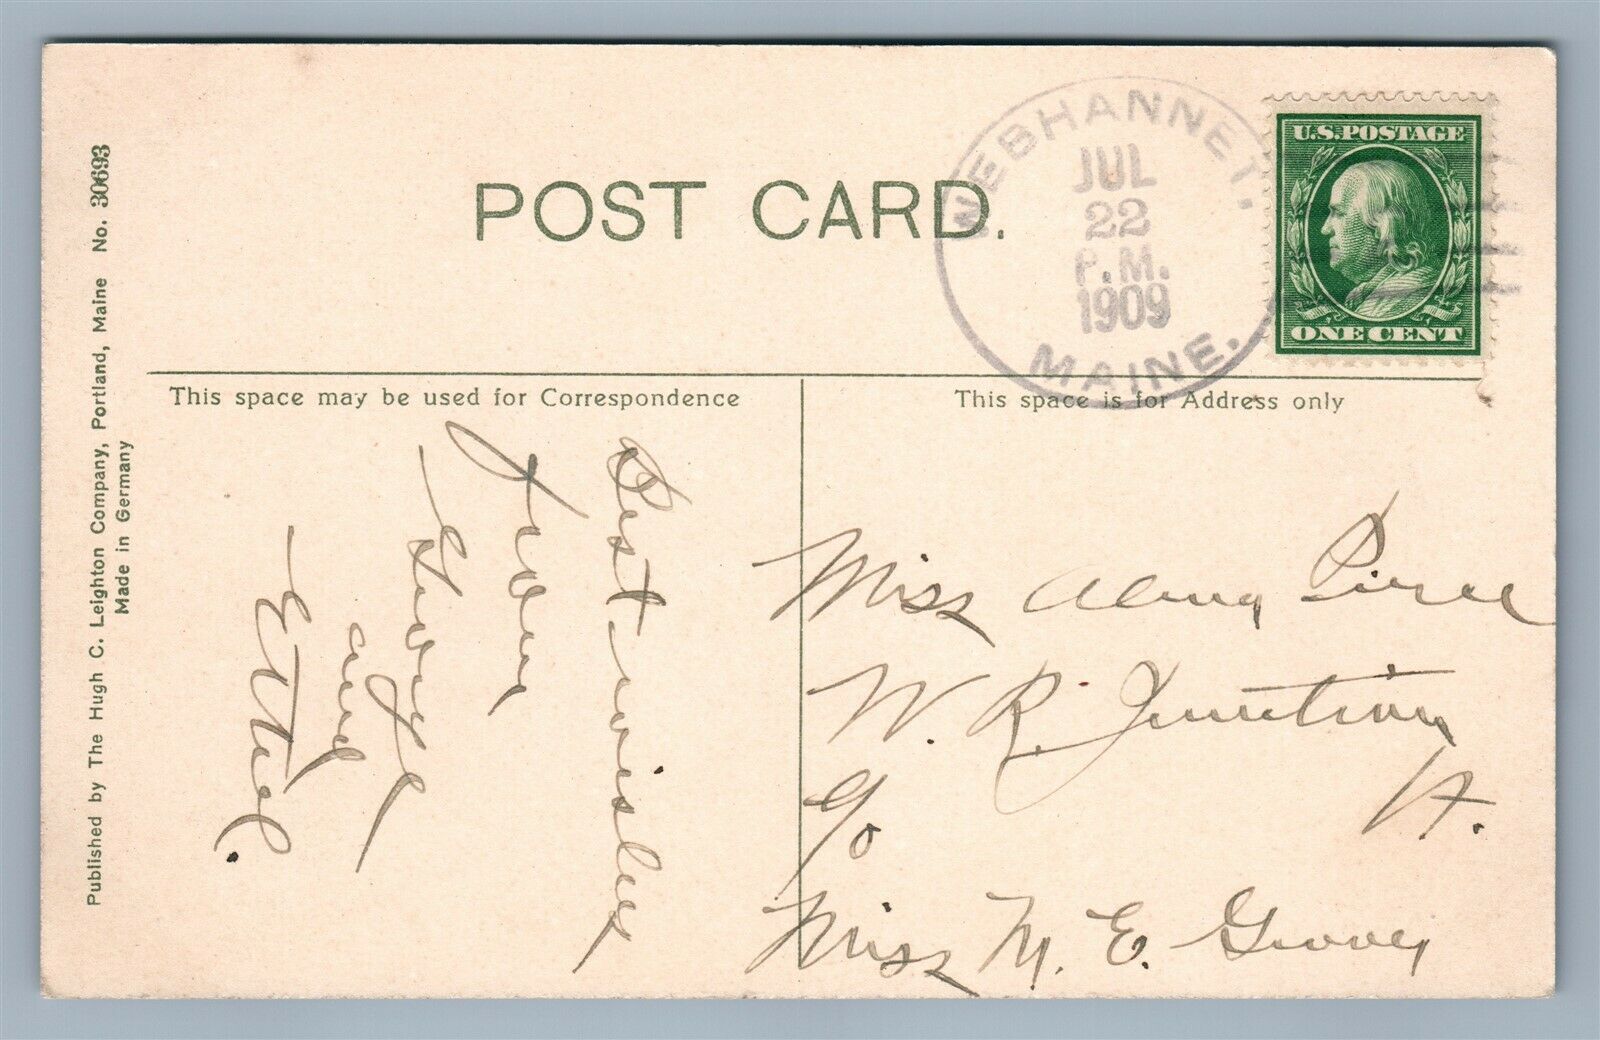 Published by The Hugh C. Leighton Company, Portland, Maine No. 30693
Made in Germany
POST CARD.
WEBHANNET,
JUL
22
P.M.
1909
MAINE.
U.S. POSTAGE
ONE CENT
This space may be used for Correspondence
This space is for Address only
Best wishes
from
George
and
Ethel.
Miss Pierce
W. R. Junction
Vt.
c/o
Miss M. E. Grover